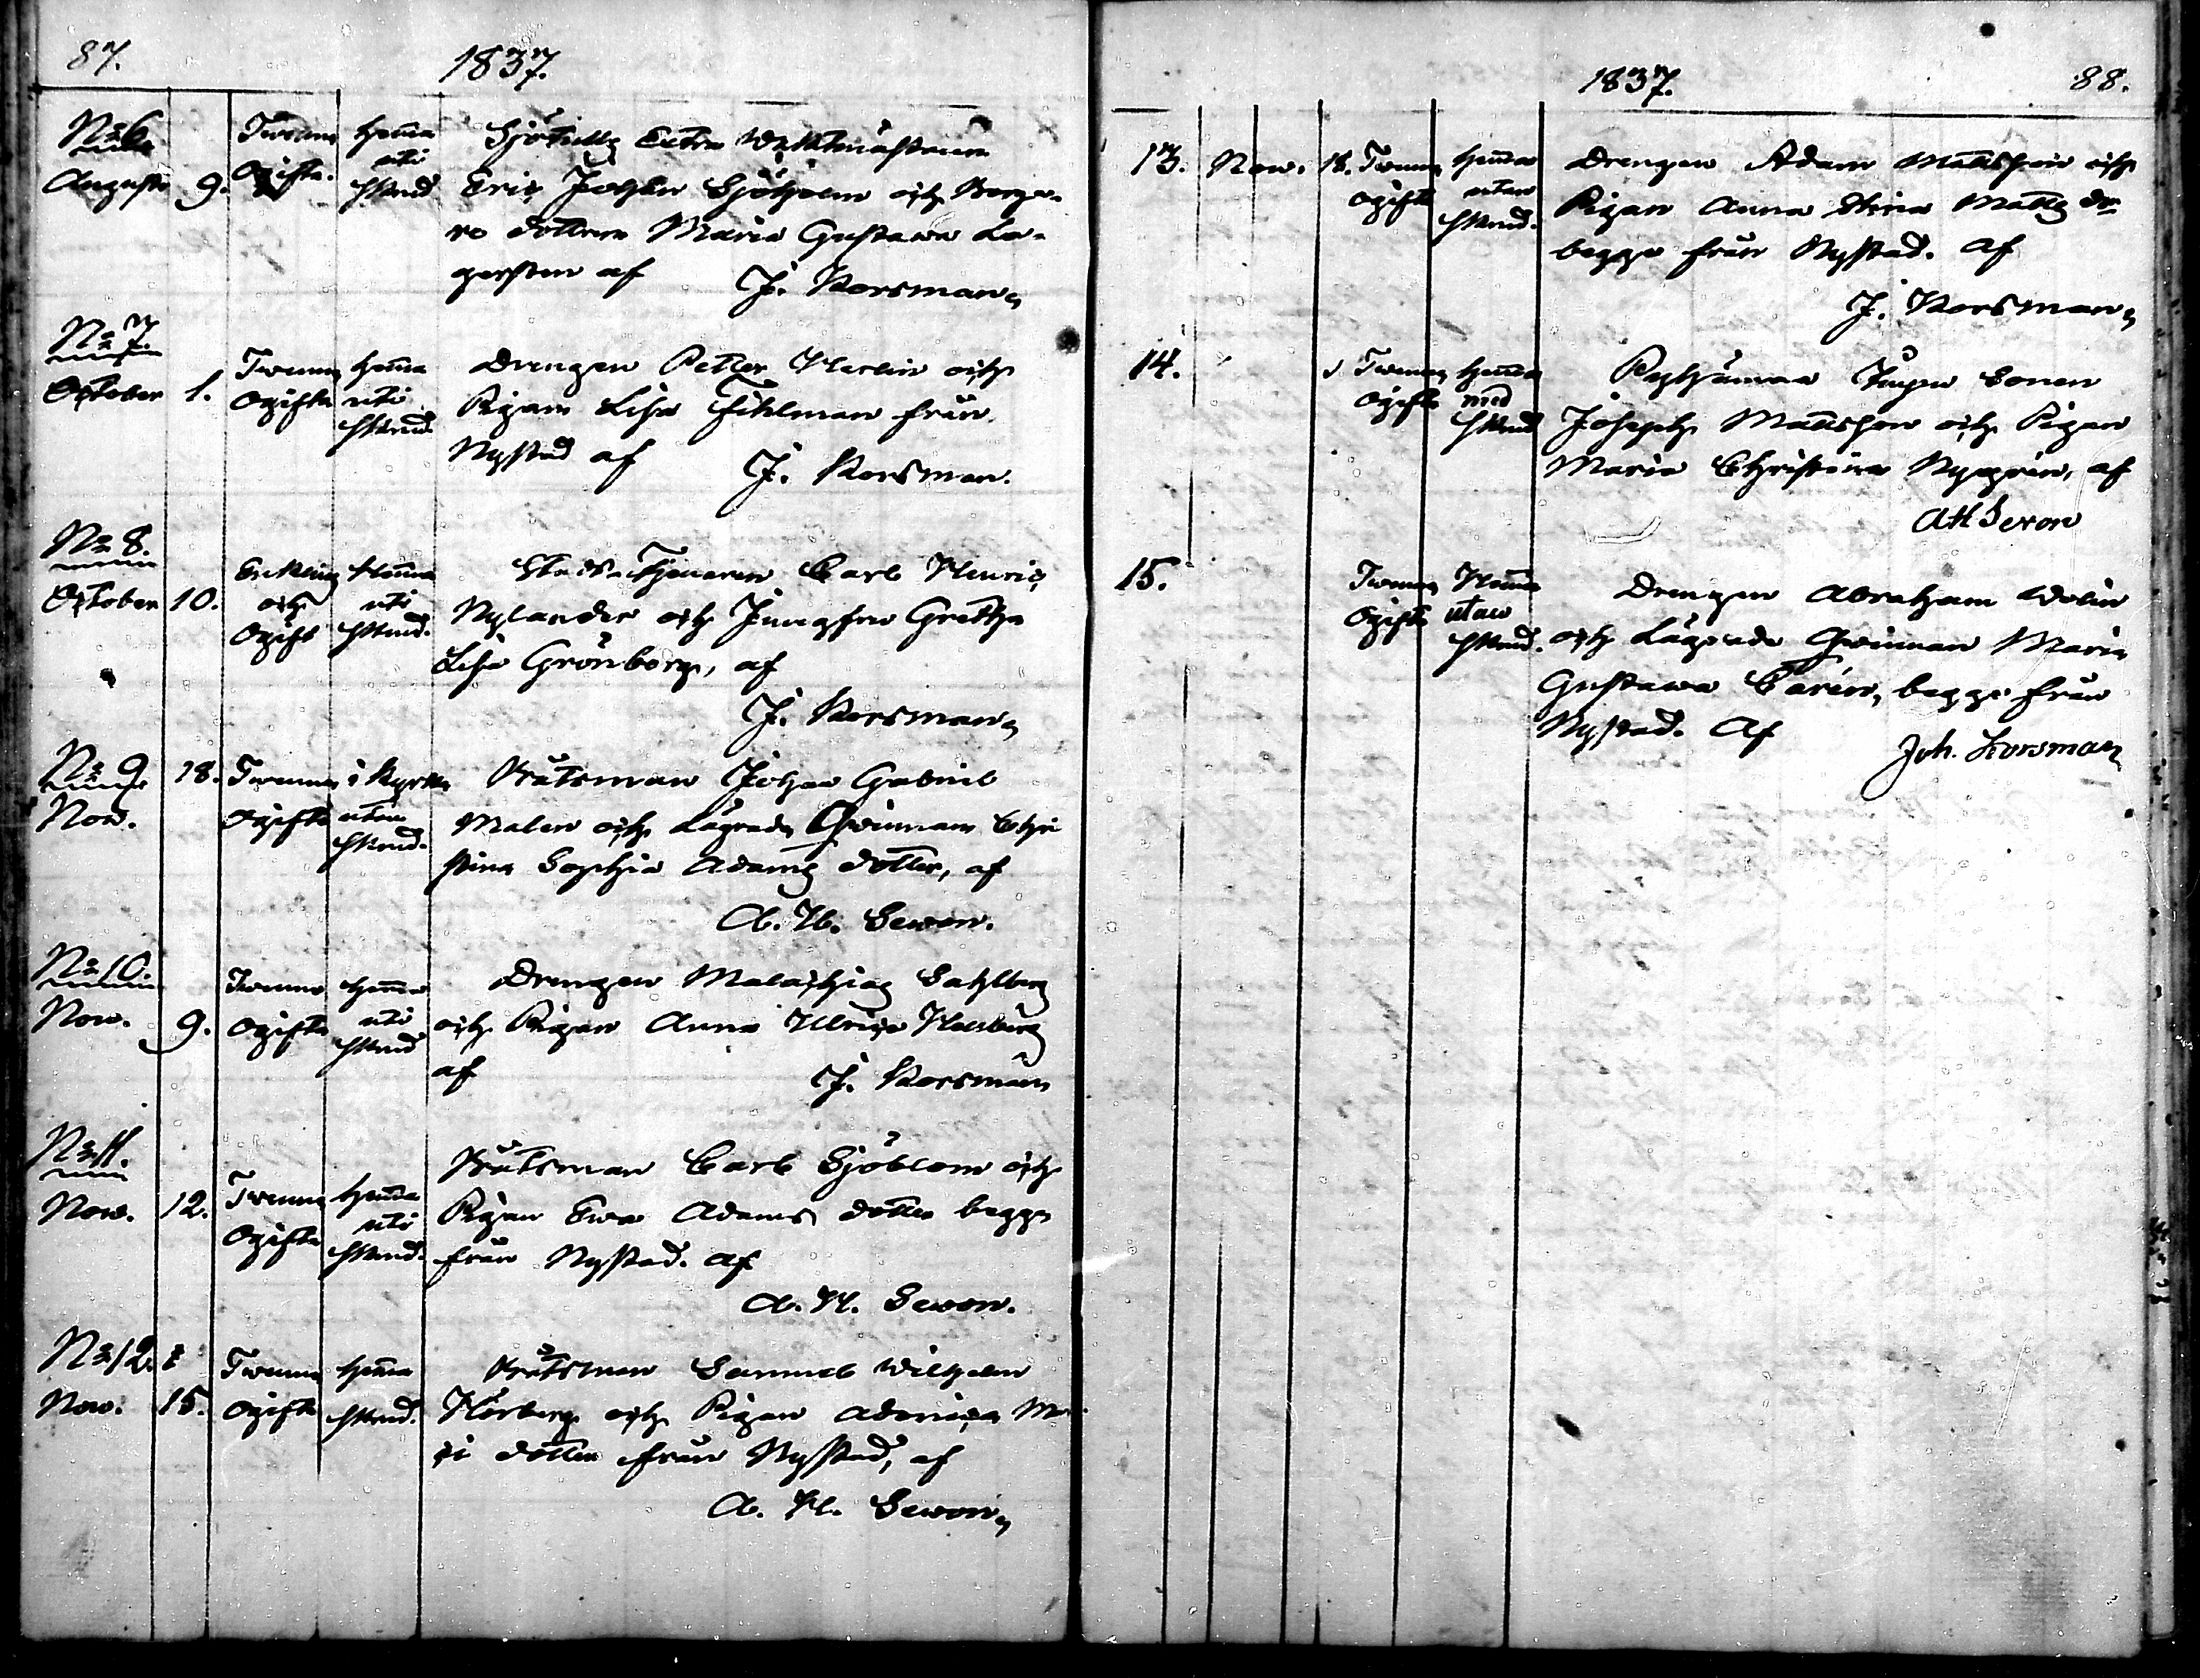 87.
1837.
No 6
Augusti 9.
Twenne
Ogifta.
hema
uti
skrud
Sjötulls Extra Waktmästaren
Eric Johan Sjöholm och Borga-
re dottren Maria Gustawa La-
gersten af
J. Korsman
No 7.
October 1.
Twenne
Ogifta
hema
uti
skrud
Drengen Petter Herlin och
Pigan Lisa Fihlman från
Nystad af
J. Korsman.
No 8.
October 10.
Enkling
och
Ogift
Hema
uti
skrud.
Stads Tjenaren Carl Henric
Nylander och Jungfru Gretha
Lisa Grönberg, af
J. Korsman
No 9
Nov.
18.
Twenne
Ogifta
i Kyrka
utan
skrud.
Båtsman Johan Gabriel
Malen och Lägrade Qwinnan Chri
stina Sophia Adams dotter, af
A. H. Sewon.
No 10.
Now. 9.
Twenne
Ogifta
hema
uti
skrud
Drengen Malachias Sahlberg
och Pigan Anna Ulrica
af
J. Korsman
No 11.
Now. 12.
Twenne
Ogifta
hema
uti
skrud.
Båtsman Carl Sjöblom och
Pigan Ewa Adams dotter begge
från Nystad. af
A. H. Sewon.
No 12.
Now. 15.
Twenne
Ogifta
hema
skrud.
Båtsman Samuel Wilhelm
Hörberg och Pigan
dotter från Nystad, af
A. H. Sewon
1837.
88.
13. Now. 16.
Twenne
ogifta
hemma
utan
skrud.
Drengen Adam Mattsson och
Pigan Anna Stina Matts dr
begge från Nystad. af
J. Korsman
14.
Twenne
Ogifta
hemma
med
skrud
Sonen
Joseph Mattsson och Pigan
Maria Christina Nygren, af
AH Sevon
15.
Twenne
Ogifta
Hema
utan
skrud.
Drengen Abraham Wolin
och Lägrade Qwinnan Maria
Gustawa Carén, begge från
Nystad. Af
Joh. Korsman